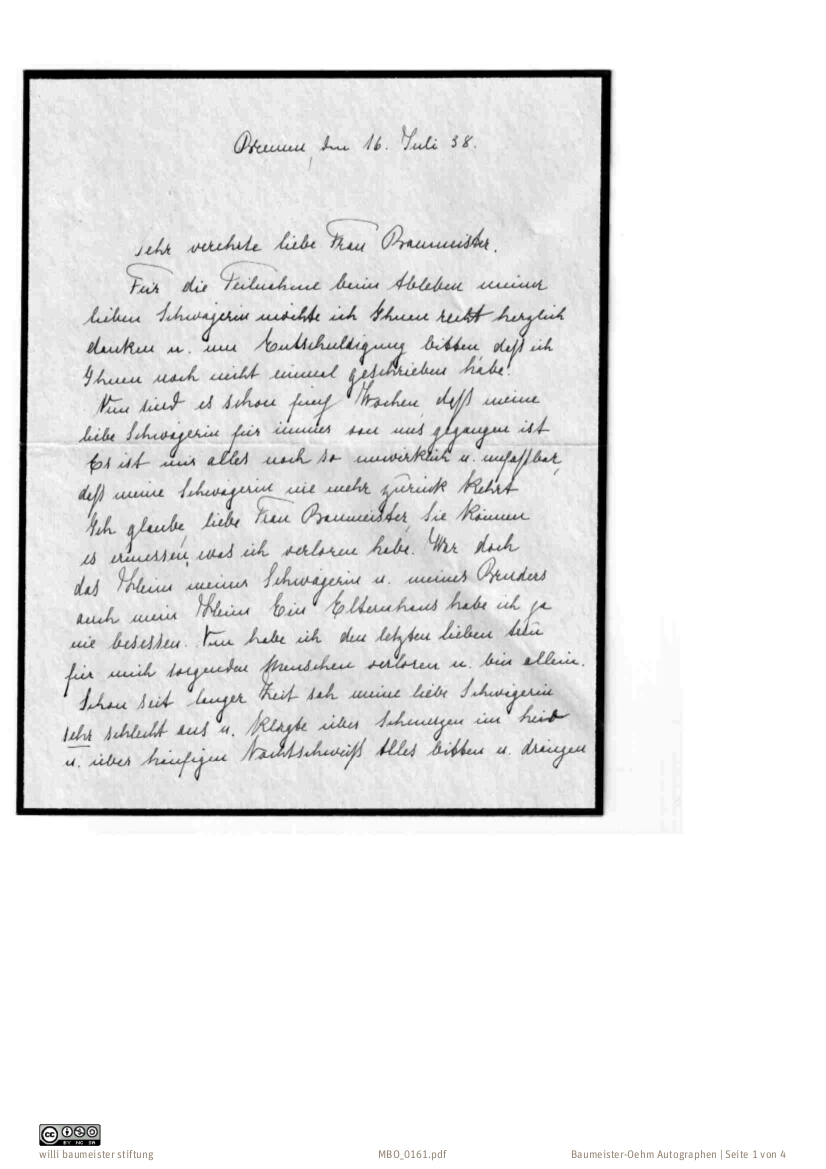 Bremen, den 16. Juli 38.
Sehr verehrte liebe Frau Baumeister.
Für die Teilnahme beim Ableben meiner
lieben Schwägerin möchte ich Ihnen recht herzlich
danken u. um Entschuldigung bitten, daß ich
Ihnen noch nicht einmal geschrieben habe.
Nun sind es schon fünf Wochen daß meine
liebe Schwägerin für immer von uns gegangen ist
Es ist mir alles noch so unwirklich u. unfaßbar,
daß meine Schwägerin nie mehr zurück kehrt
Ich glaube, liebe Frau Baumeister, Sie können
es ermessen, was ich verloren habe. War doch
das Heim meiner Schwägerin u. meines Bruders
auch mein Heim Ein Elternhaus habe ich ja
nie besessen. Nun habe ich den letzten lieben treu
für mich sorgenden Menschen verloren u. bin allein.
Schon seit langer Zeit sah meine liebe Schwägerin
sehr schlecht aus u. klagte über Schmerzen im
u. über häufigen Nachtschweiß Alles bitten u. drängen
CC BY NC SA
willi baumeister stiftung
MBO_0161.pdf
Baumeister-Oehm Autographen | Seite 1 von 4